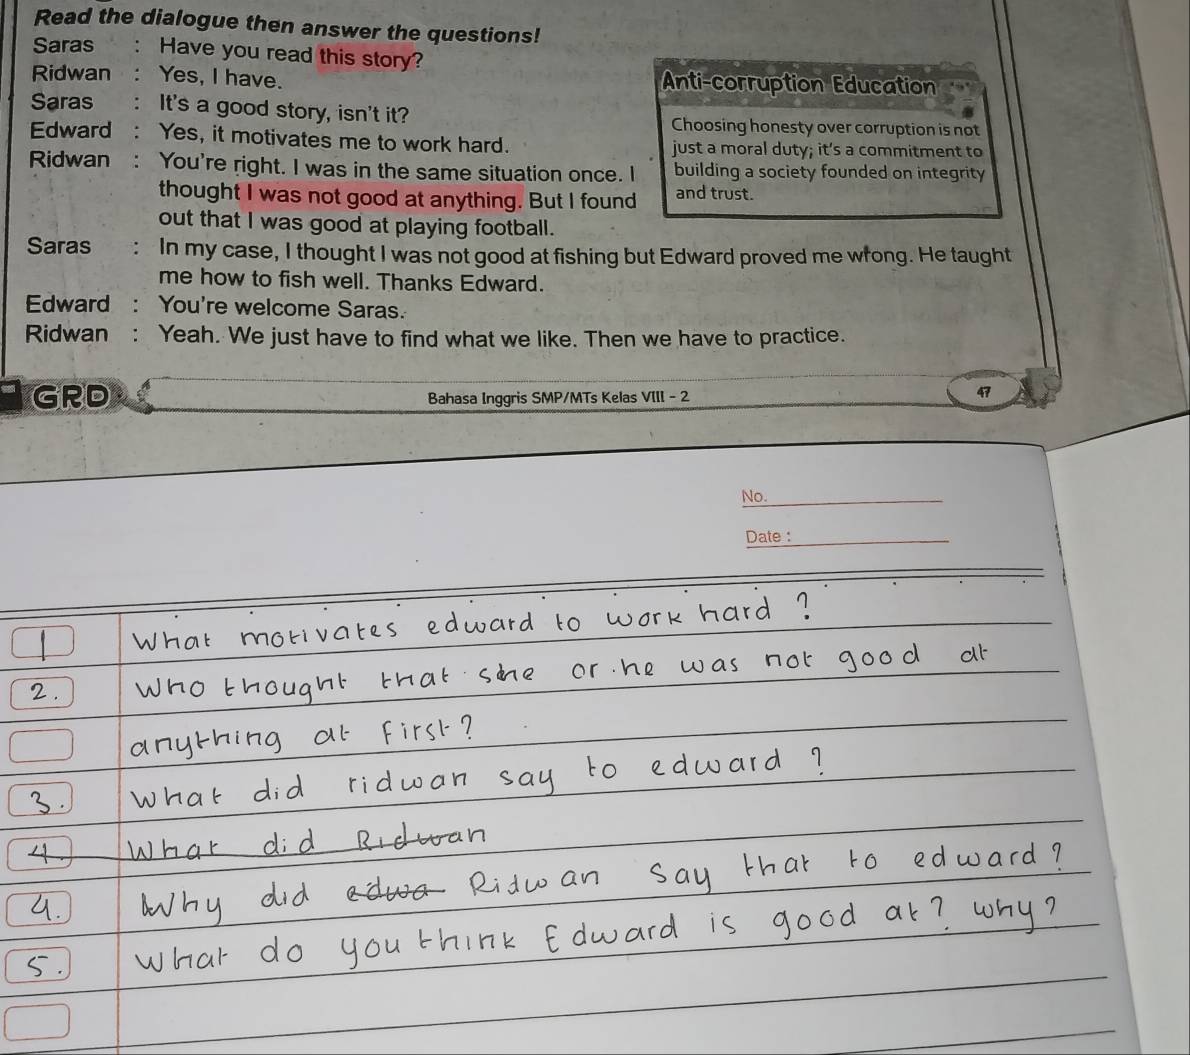 Read the dialogue then answer the questions!
Saras : Have you read this story?
Ridwan : Yes, I have.
Saras : It's a good story, isn't it?
Edward : Yes, it motivates me to work hard.
Ridwan : You're right. I was in the same situation once. I
thought I was not good at anything. But I found
out that I was good at playing football.
Saras : In my case, I thought I was not good at fishing but Edward proved me wrong. He taught
me how to fish well. Thanks Edward.
Edward : You're welcome Saras.
Ridwan : Yeah. We just have to find what we like. Then we have to practice.
Anti-corruption Education
Choosing honesty over corruption is not
just a moral duty; it's a commitment to
building a society founded on integrity
and trust.
GRD
Bahasa Inggris SMP/MTs Kelas VIII - 2
47
No.
Date :
1 What motivates edward to work hard ?
2. Who thought that she or he was not good at
anything at first?
3. What did ridwan say to edward ?
4. What did Ridwan
4. Why did edwa Ridwan say that to edward?
5. What do you think Edward is good at? why?